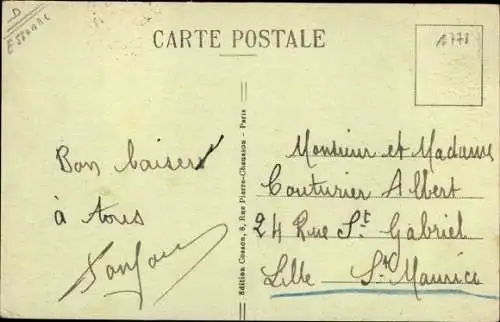 D
ESSONNE
CARTE POSTALE
Bon baiser
à tous
Edition Cosson, 8, Rue Pierre-Chausson - Paris
Monsieur et Madame
Couturier Albert
24 Rue St Gabriel
Lille St Maurice